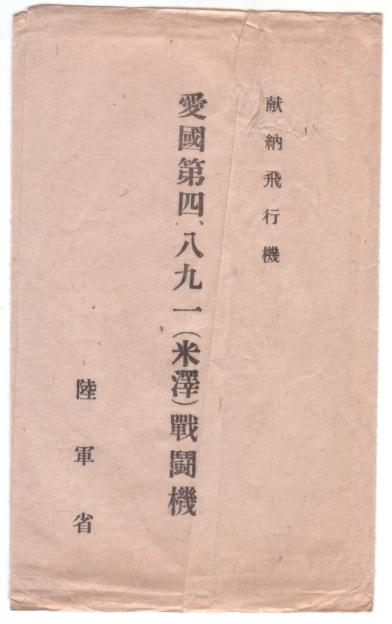 献納飛行機
愛國第四、八九一(米澤)戰鬪機
陸軍省